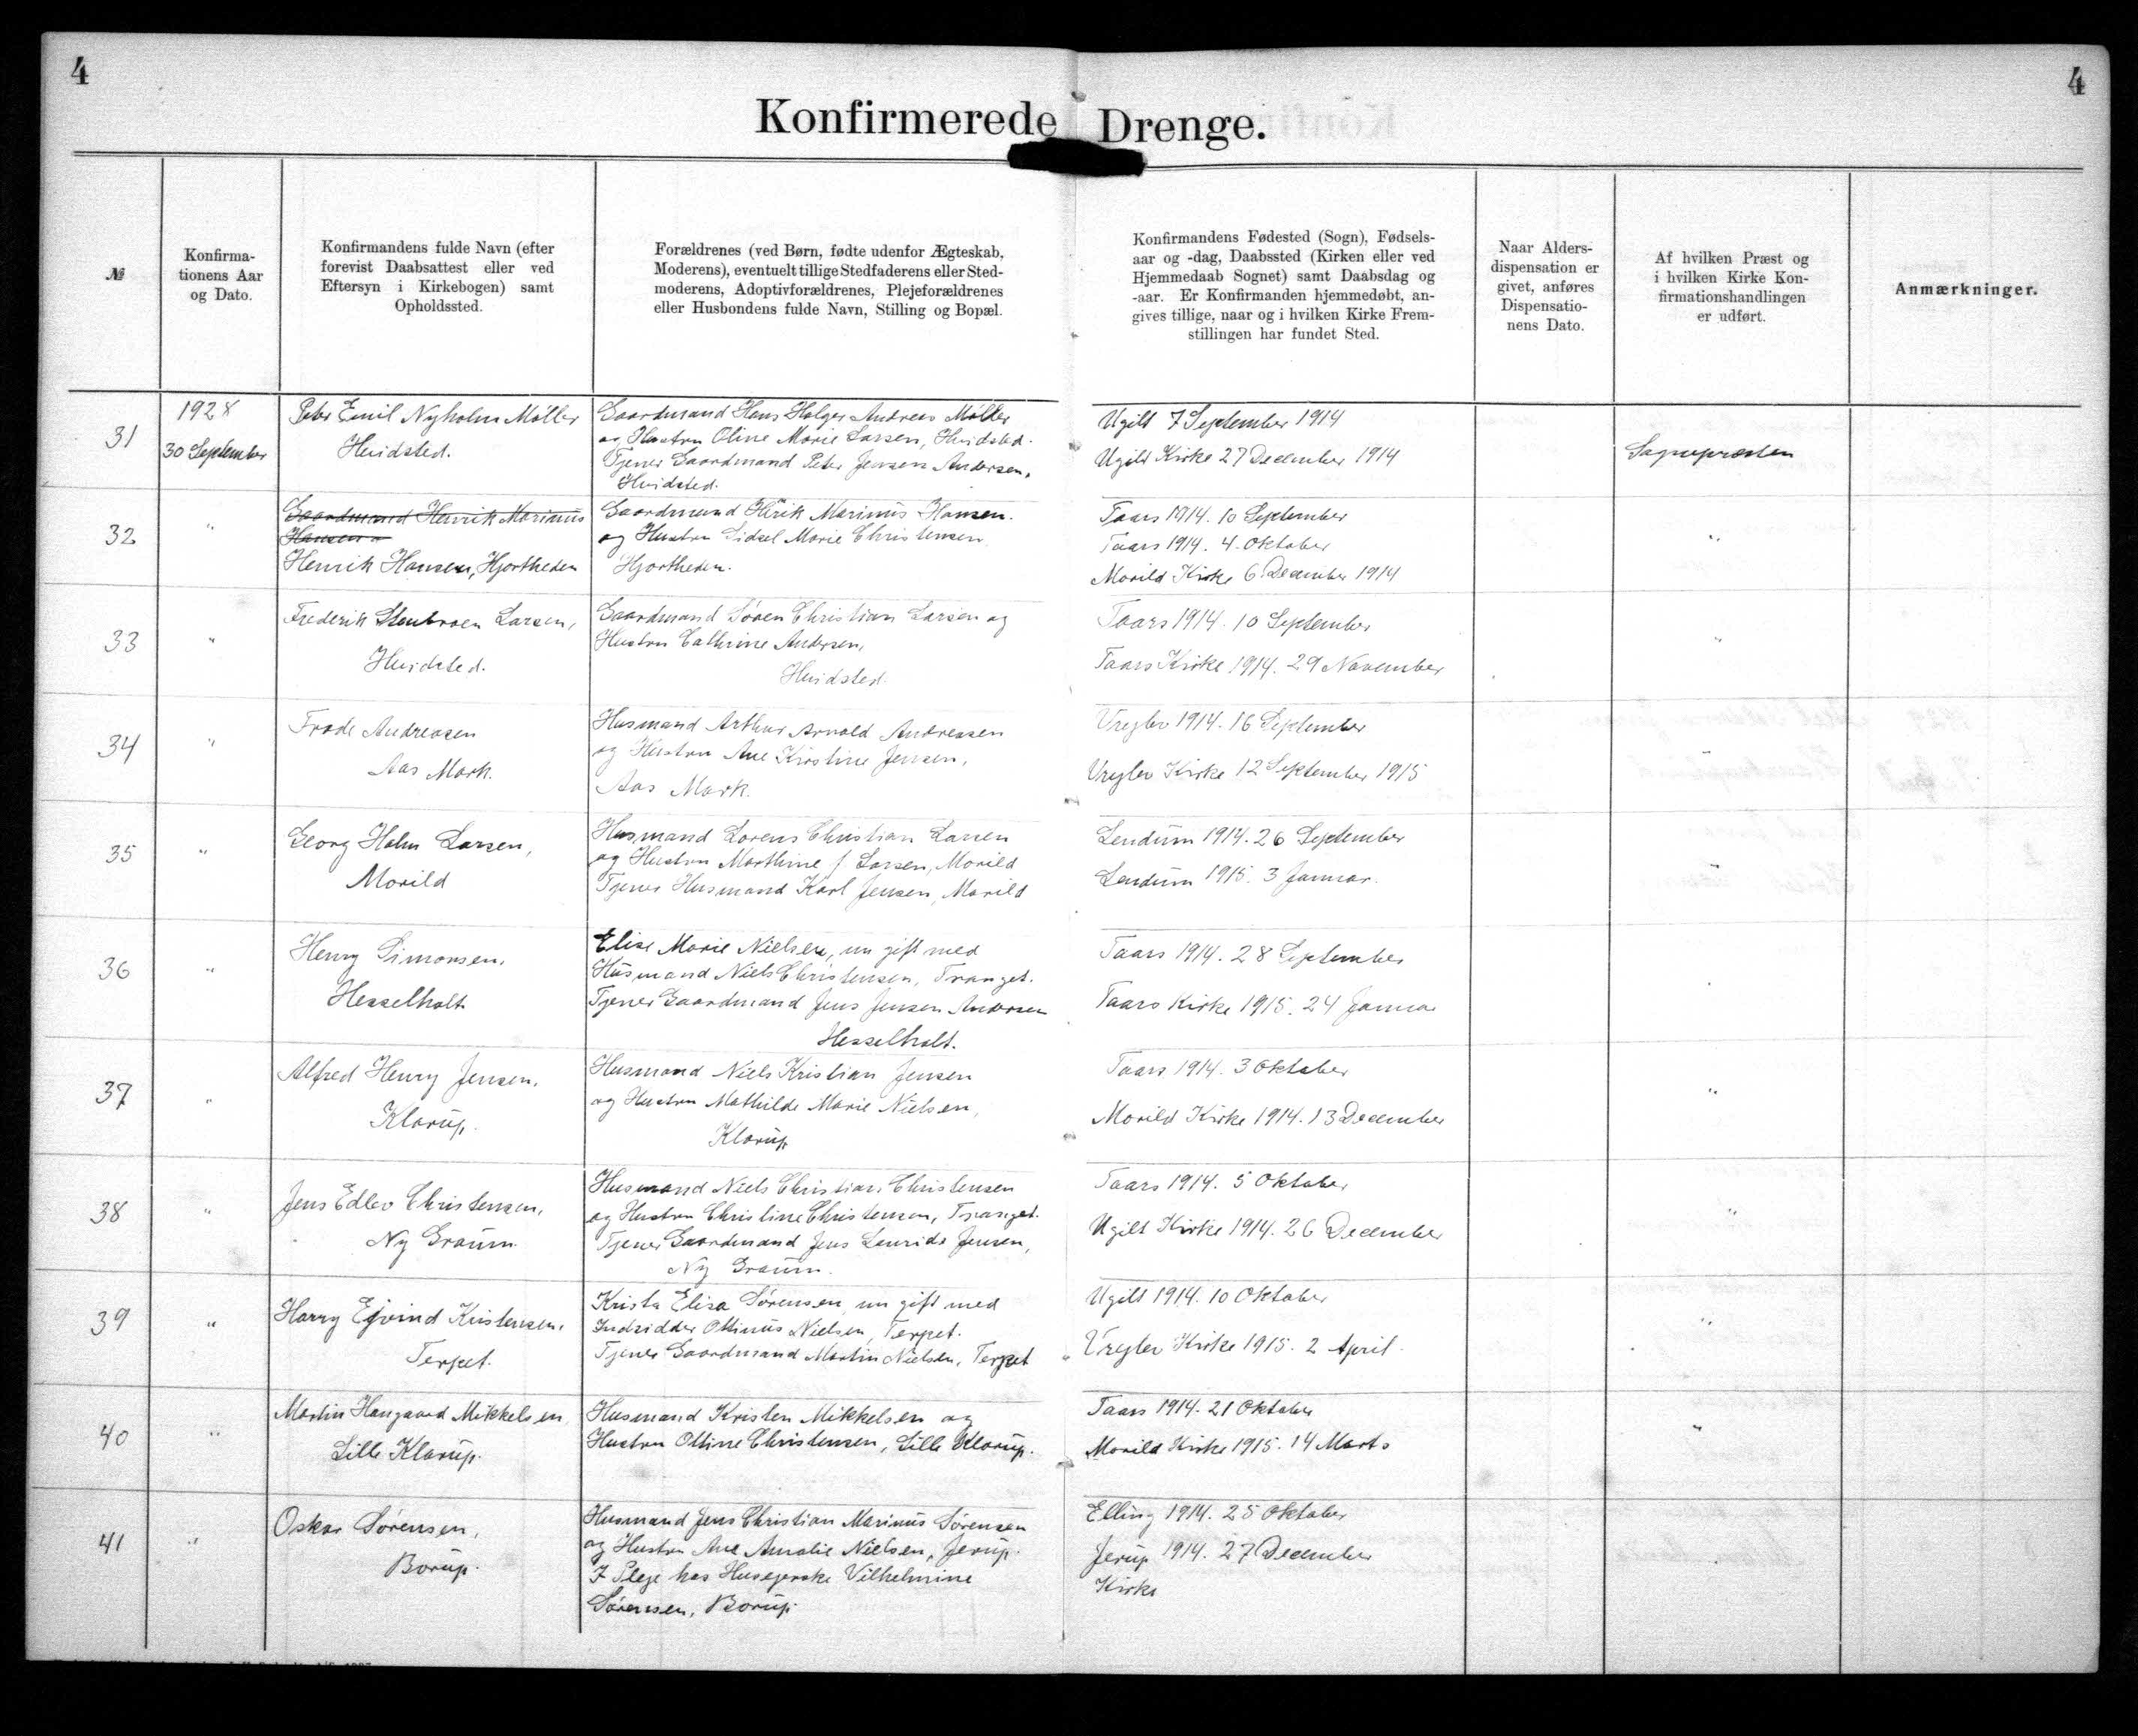 4
4
Konfirmerede Drenge.
№
Konfirma-
tionens Aar
og Dato.
Konfirmandens fulde Navn (efter
forevist Daabsattest eller ved
Eftersyn i Kirkebogen) samt
Opholdssted.
Forældrenes (ved Børn, fødte udenfor Ægteskab,
Moderens), eventuelt tillige Stedfaderens eller Sted-
moderens, Adoptivforældrenes, Plejeforældrenes
eller Husbondens fulde Navn, Stilling og Bopæl.
Konfirmandens Fødested (Sogn), Fødsels-
aar og -dag, Daabssted (Kirken eller ved
Hjemmedaab Sognet) samt Daabsdag og
-aar. Er Konfirmanden hjemmedøbt, an-
gives tillige, naar og i hvilken Kirke Frem-
stillingen har fundet Sted.
Naar Alders-
dispensation er
givet, anføres
Dispensatio-
nens Dato.
Af hvilken Præst og
i hvilken Kirke Kon-
firmationshandlingen
er udført.
Anmærkninger.
31
1928
30 September
Peter Emil Nyholm Møller
Hvidsted.
Gaardmand Hans Holger Andreas Møller
og Hustru Oline Marie Larsen, Hvidsted.
Tjener Gaardmand Peter Jensen Andersen,
Hvidsted.
Ugilt 7 September 1914
Ugilt Kirke 27 December 1914
Sognepræsten
32
"
Gaardmand Henrik Marinus
Hansen
Henrik Hansen, Hjortheden
Gaardmand Henrik Marinus Hansen.
og Hustru Sidsel Marie Christensen
Hjortheden.
Taars 1914. 10 September
Taars 1914. 4. Oktober
Morild Kirke 6 December 1914
"
33
"
Frederik Stenbroen Larsen,
Hvidsted.
Gaardmand Søren Christian Larsen og
Hustru Cathrine Andersen,
Hvidsted.
Taars 1914. 10 September
Taars Kirke 1914. 29 November
"
34
"
Frode Andreasen
Aas Mark.
Husmand Arthur Arnold Andreasen
og Hustru Ane Kirstine Jensen,
Aas Mark.
Vrejlev 1914. 16 September
Vrejlev Kirke 12 September 1915
"
35
"
Georg Holm Larsen,
Morild
Husmand Lorens Christian Larsen
og Hustru Marthine f. Larsen, Morild
Tjener Husmand Karl Jensen, Morild
Lendum 1914. 26 September
Lendum 1915. 3 Januar.
"
36
"
Henry Simonsen,
Hesselholt
Elise Marie Nielsen, nu gift med
Husmand Niels Christensen, Tranget.
Tjener Gaardmand Jens Jensen Andersen
Hesselholt.
Taars 1914. 28 September
Taars Kirke 1915. 24 Januar
"
37
"
Alfred Henry Jensen,
Klarup.
Husmand Niels Kristian Jensen
og Hustru Mathilde Marie Nielsen,
Klarup
Taars 1914. 3 Oktober
Morild Kirke 1914. 13 December
"
38
"
Jens Edlev Christensen,
Ny Graum
Husmand Niels Christian Christensen
og Hustru Christine Christensen, Tranget.
Tjener Gaardmand Jens Laurids Jensen,
Ny Graum.
Taars 1914. 5 Oktober
Ugilt Kirke 1914. 26 December
"
39
"
Harry Ejvind Kristensen,
Terpet.
Krista Elisa Sørensen, nu gift med
Indsidder Ottinus Nielsen, Terpet.
Tjener Gaardmand Martin Nielsen, Terpet
Ugilt 1914. 10 Oktober
Vrejlev Kirke 1915. 2 April.
"
40
"
Martin Haugaard Mikkelsen
Lille Klarup.
Husmand Kristen Mikkelsen og
Hustru Ottine Christensen, Lille Klarup.
Taars 1914. 21 Oktober
Morild Kirke 1915. 14 Marts
"
41
"
Oskar Sørensen,
Borup.
Husmand Jens Christian Marinus Sørensen
og Hustru Ane Amalie Nielsen, Jerup.
I Pleje hos Husejerske Vilhelmine
Sørensen, Borup.
Elling 1914. 25 Oktober
Jerup 1914. 27 December
Kirke